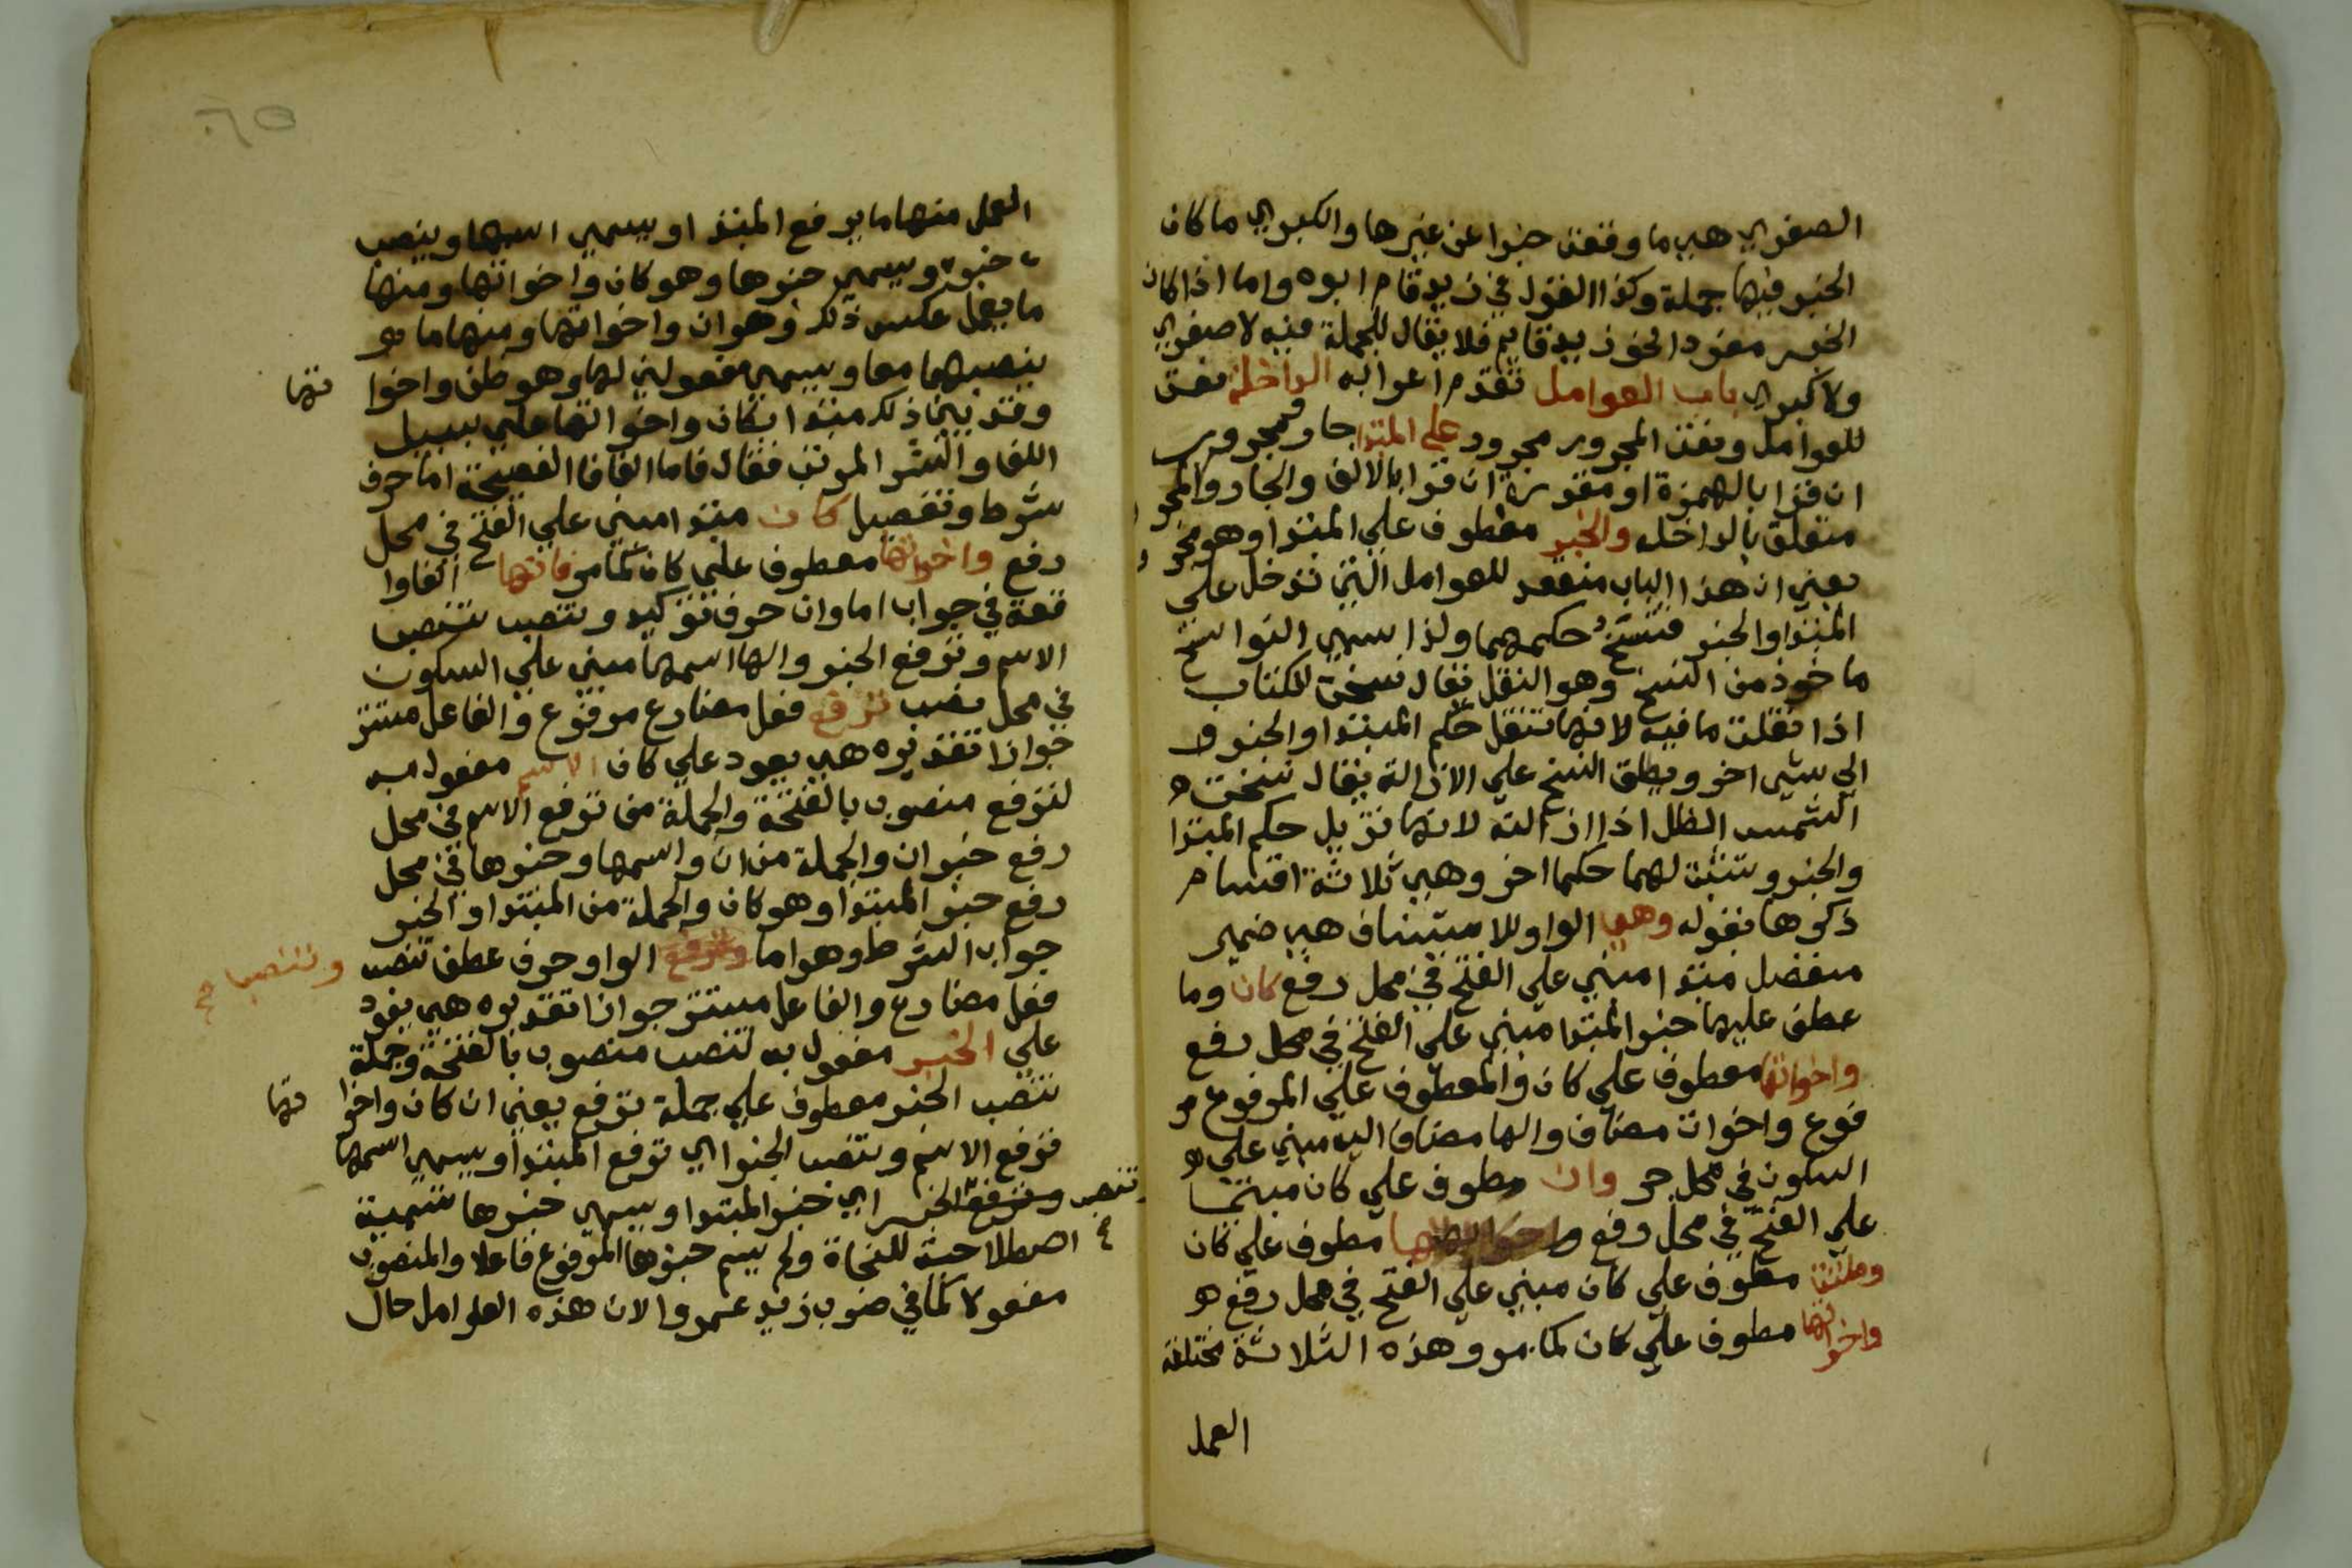 الصغري هي ما وقعت خبرا عن غيرها والكبري ما كان
الخبر فيها جملة وكذا القول في زيد قام ابوه واما اذا كان
الخبر مفردا نحو زيد قايم فلا يقال للجملة فيه لا صغري
ولا كبري باب العوامل تقدم اعرابه الداخلة نعت
للعوامل ونعت المجرور مجرور علي المبتدا جار ومجرور
ان قرا بالهمزة او مقدرة ان قرا بالالف والجار والمجرور
متعلق بالداخله والخبر معطوف علي المبتدا وهو مجرور
يعني ان هذا الباب منعقد للعوامل التي تدخل علي
المبتدا والخبر فتنسخ حكمهما ولذا سمي النواسخ
ماخوذ من النسخ وهو النقل يقال نسخت الكتاب
اذا نقلت ما فيه لانها تنقل حكم المبتدا والخبر
الي شي اخر ويطلق النسخ علي الازالة يقال نسخت
الشمس الظل اذا ازالته لانها تزيل حكم المبتدا
والخبر وتثبت لهما حكما اخر وهي ثلاثة اقسام
ذكرها بقوله وهي الواو للاستيناف هي ضمير
منفصل مبتدا مبني علي الفتح في محل رفع كان وما
عطف عليها خبر المبتدا مبني علي الفتح في محل رفع
واخواتها معطوف علي كان والمعطوف علي المرفوع مر
فوع واخوات مضاف والها مضاف اليه مبني علي
السكون في محل جر وان معطوف علي كان مبني
علي الفتح في محل رفع واخواتها مطوف علي كان
وظننت معطوف علي كان مبني علي الفتح في محل رفع
واخواتها مطوف علي كان كما مر وهذه الثلاثة مختلفة
العمل
٦٥
العمل منها ما يرفع المبتدا ويسمي اسمها وينصب
خبره ويسمي خبرها وهو كان واخواتها ومنها
ما يعمل عكس ذلك وهو ان واخواتها ومنها ما
ينصبهما معا ويسمي مفعولين لها وهو ظن واخوا تها
وقد بين ذلك مبتدا بكان واخواتها علي سبيل
اللف والنشر المرتب فقال فاما الفا فا الفصيحة اما حرف
شرط وتفصيل كان مبتدا مبني علي الفتح في محل
رفع واخواتها معطوف علي كان كما مر فانها الفا وا
قعة في جواب اما وان حرف توكيد ونصب تنصب
الاسم وترفع الخبر والها اسمها مبني علي السكون
في محل نصب ترفع فعل مضارع مرفوع والفاعل مستتر
جوازا تقديره هي يعود علي كان الاسم مفعول به
لترفع منصوب بالفتحة والجملة من ترفع الاسم في محل
رفع خبر ان والجملة من ان واسمها وخبرها في محل
رفع خبر المبتدا وهو كان والجملة من المبتدا والخبر
جواب الشرط وهو اما وترفع الواو حرف عطف تنصب وتنصب صح
فعل مضارع والفاعل مستتر جوازا تقديره هي يعود
علي الخبر مفعول به لتنصب منصوب بالفتحة وجملة
تنصب الخبر معطوف علي جملة ترفع يعني ان كان واخوا تها
ترفع الاسم وتنصب الخبر اي ترفع المبتدا ويسمي اسمها
وتنصب وترفع الخبر اي خبر المبتدا ويسمي خبرها تسمية
اصطلاحية للنحاة ولم يسم خبرها المرفوع فاعلا والمنصوب
مفعولا كما في ضرب زيد عمروا لان هذه العوامل حال